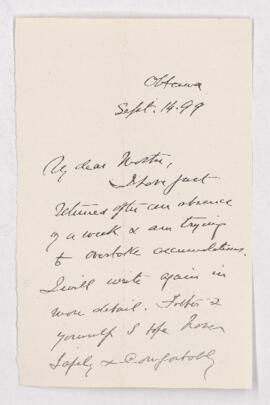 Ottawa
Sept. 14. 99
My dear
I have just
returned after an absence
of a week & am trying
to overtake accumulations.
I will write again in
more detail.
yourself I hope
safely & comfortably